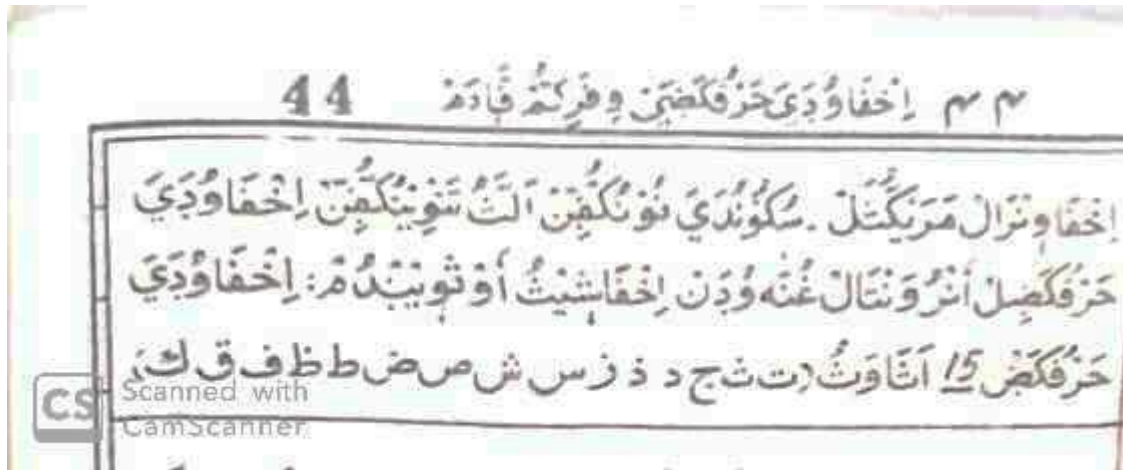 ٤٤ اِخْفَاوُدَيَ حَرْفُكَضَيُ وِ فِرِكَتُمْ قَادَمْ 44
اِخْفَا وٕنْرَالْ مَرَيْكَّتَلْ. سُكُوْنُدَيَ نُوْنُكُّڣِنْ اَلَّتُ تَنْوِيْنُكُّڣِنْ اِخْفَاوُدَيَ
حَرْفُكَضِلْ اُنْرُ وَنْتَالْ غُنَّه وُدَنْ اِخْفَا شَيْتُ اٗوْتَوٕيْنْڊُمْ: اِخْفَاوُدَيَ
حَرْفُكَضْ 15 اَتَاوَتُ (ت ث ج د ذ ز س ش ص ض ط ظ ف ق ك)
Scanned with
CamScanner